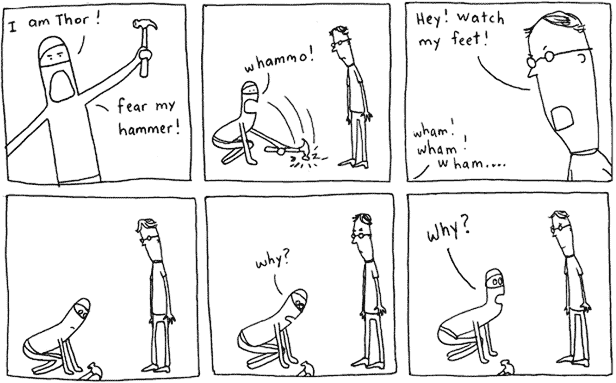 I am Thor!
fear my
hammer!
whammo!
Hey! watch
my feet!
wham!
wham!
wham....
why?
Why?